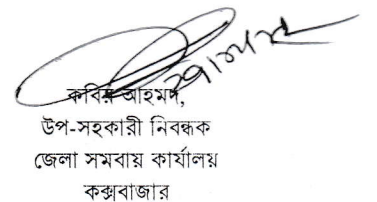 কবির আহমদ,
উপ-সহকারী নিবন্ধক
জেলা সমবায় কার্যালয়
কক্সবাজার